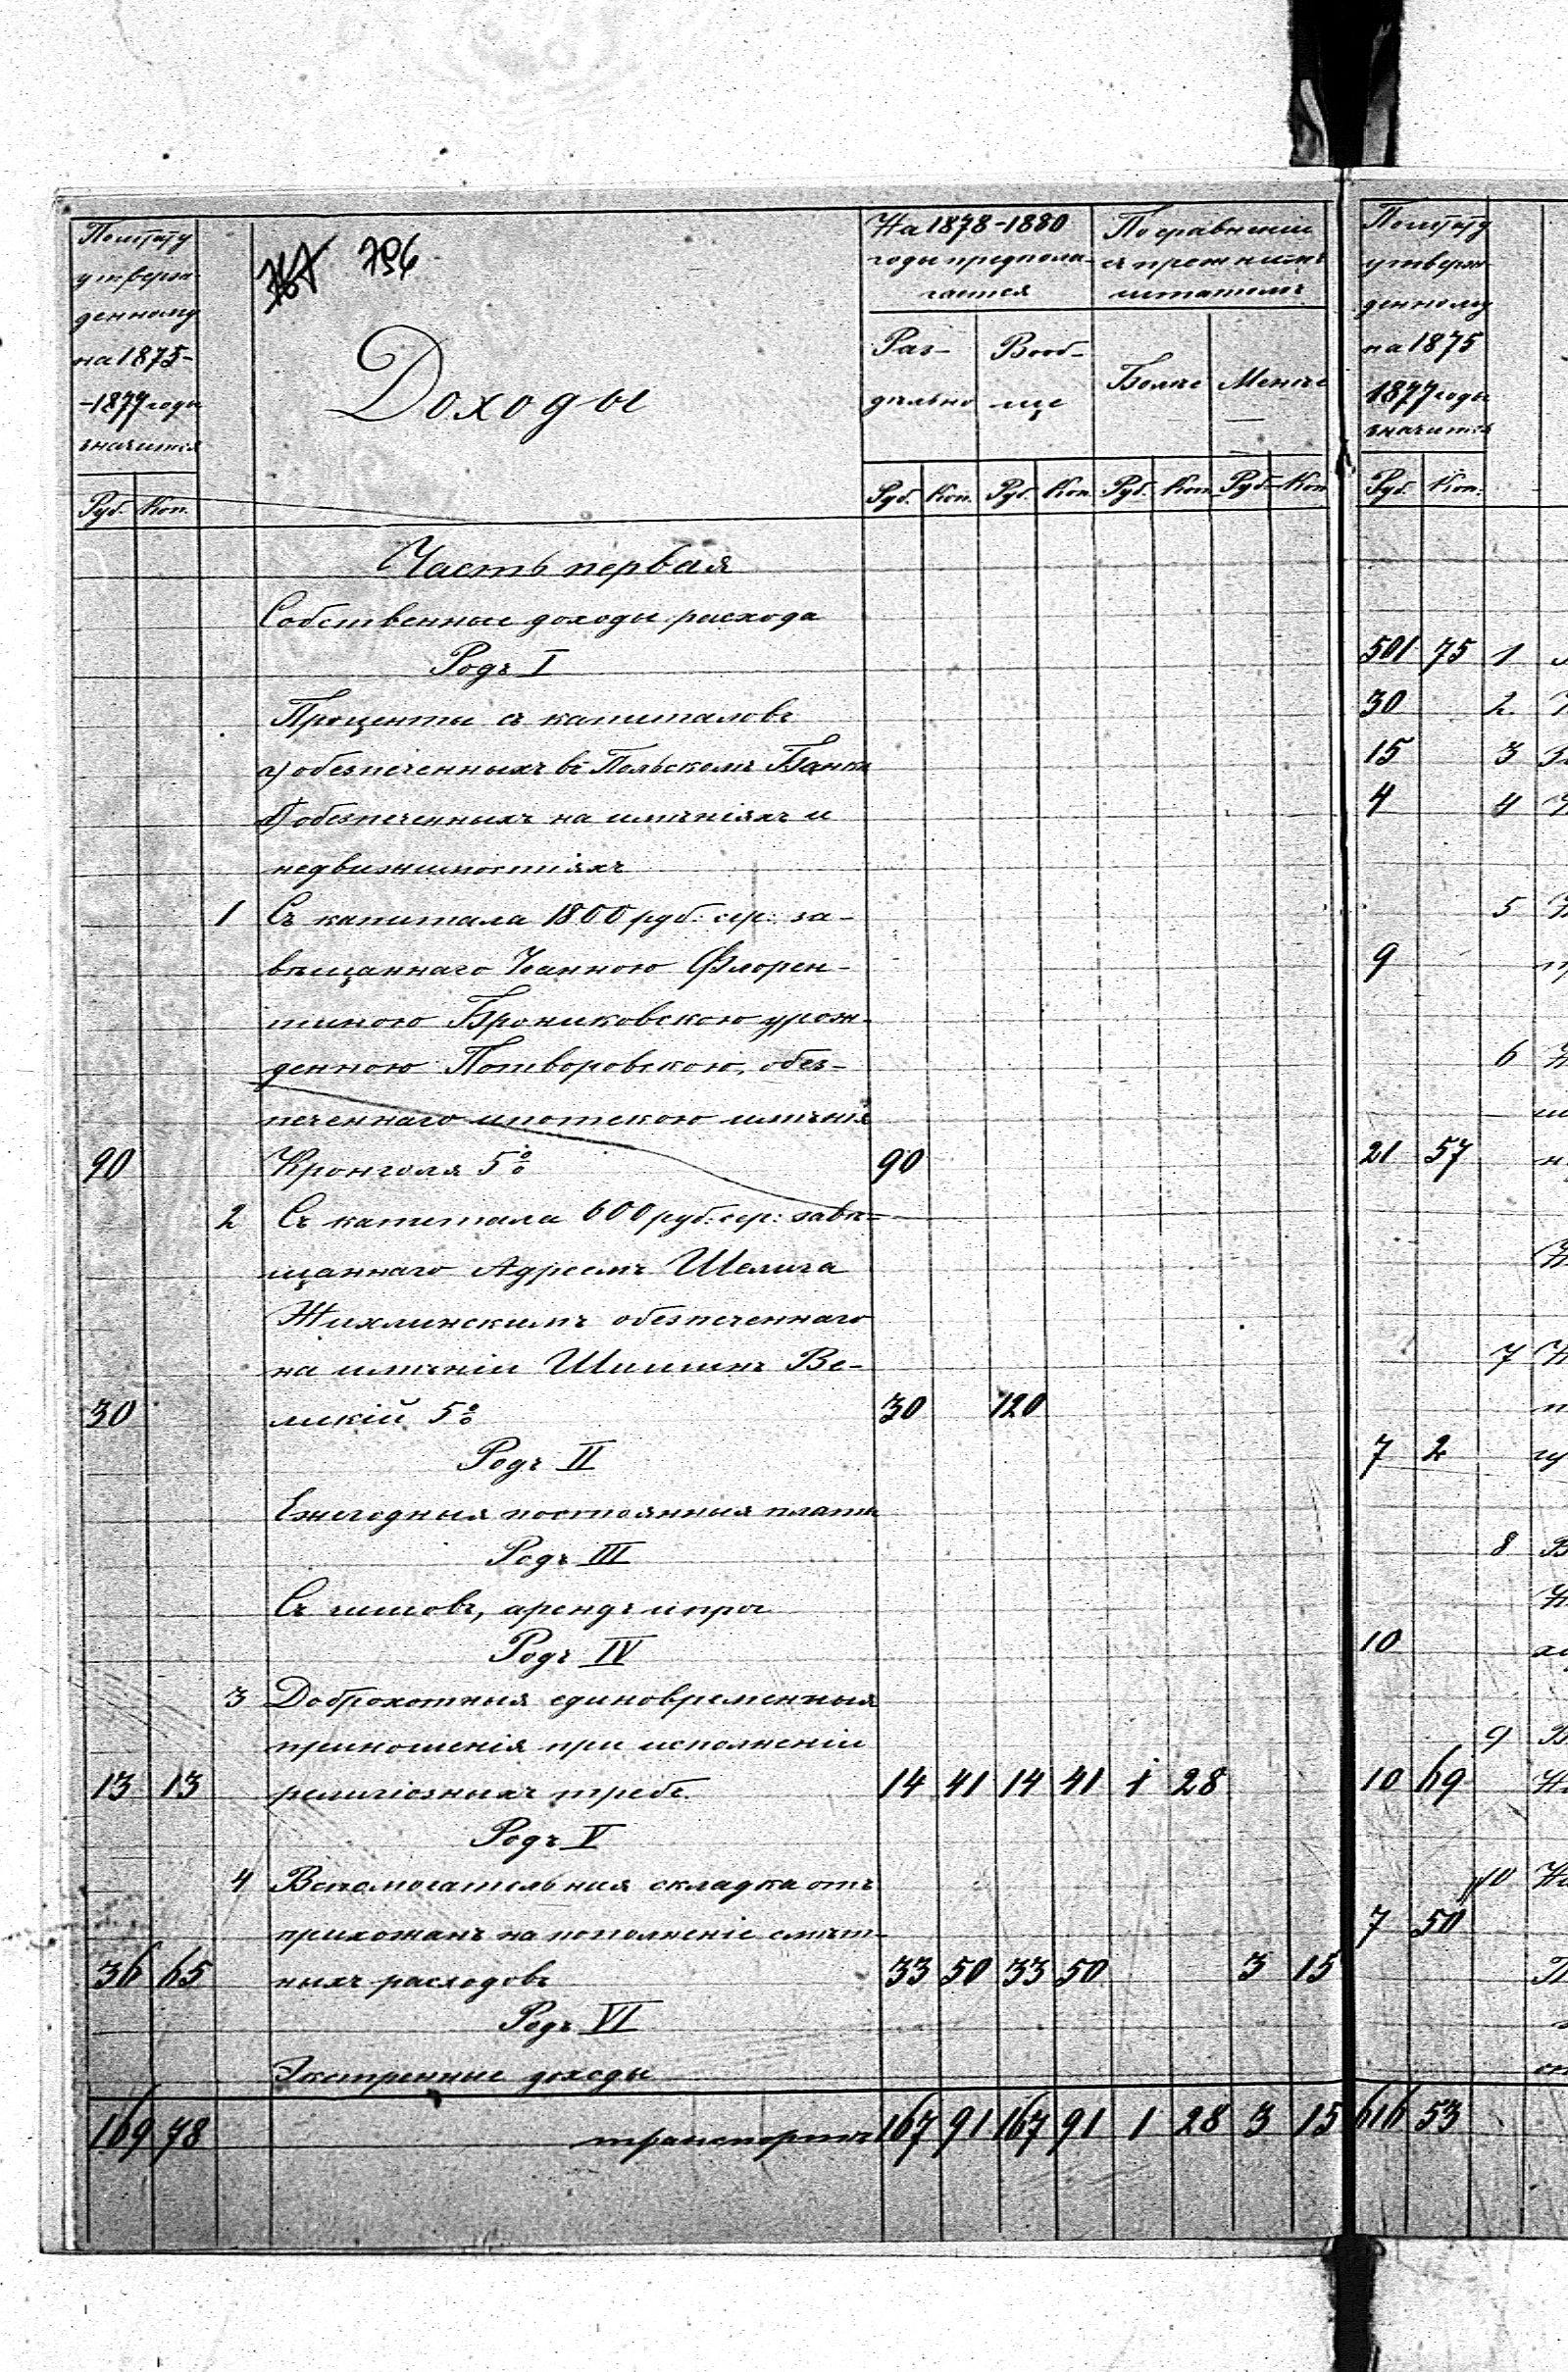 По штату утверж-
денному
на 1875-
-1877 годы
значится
Руб. Коп.
754
Доходы
На 1878-1880
годы предпола-
гается
Раз-
дѣльно
Вооб-
ще
По сравненію
съ прежнимъ
штатомъ
Болѣе Менѣе
Руб. Коп. Руб. Коп. Руб. Коп. Руб. Коп
Часть первая
Собственные доходы расхода
Родъ I
Проценты съ капиталовъ
а) обезпеченныхъ въ Польскомъ Банкѣ
б) обезпеченныхъ на имѣніяхъ и
недвижимостяхъ
1 Съ капитала 1800 руб: сер: за-
вѣщаннаго Іоанною Флорен-
тиною Брониковскою урож-
денною Потворовскою, обез-
печеннаго ипотекою имѣнія
90 Кронголя 5% 90
2 Съ капитала 600 руб: сер: завѣ-
щаннаго Адреемъ Шелига
Жихлинскимъ обезпеченнаго
на имѣніи Ве-
30 ликій 5% 30 120
Родъ II
Ежегодныя постоянныя платы
Родъ III
Съ чиншовъ, арендъ и проч
Родъ IV
3 Доброхотныя единовременныя
приношенія при исполненіи
13 13 религіозныхъ требъ. 14 41 14 41 1 28
Родъ V
4 Вспомогательная складка отъ
прихожанъ на пополненіе смѣт-
36 65 ныхъ расходовъ 33 50 33 50 3 15
Родъ VI
Экстренные доходы
169 78 транспортъ 167 91 167 91 1 28 3 15
По штату
утверж-
денному
на 1875
1877 годы
значится
Руб. Коп.
501 75 1
30 2
15 3
4 4
5
9
6
21 57
7
7 2
8
10
9
10 69
10
7 50
616 53